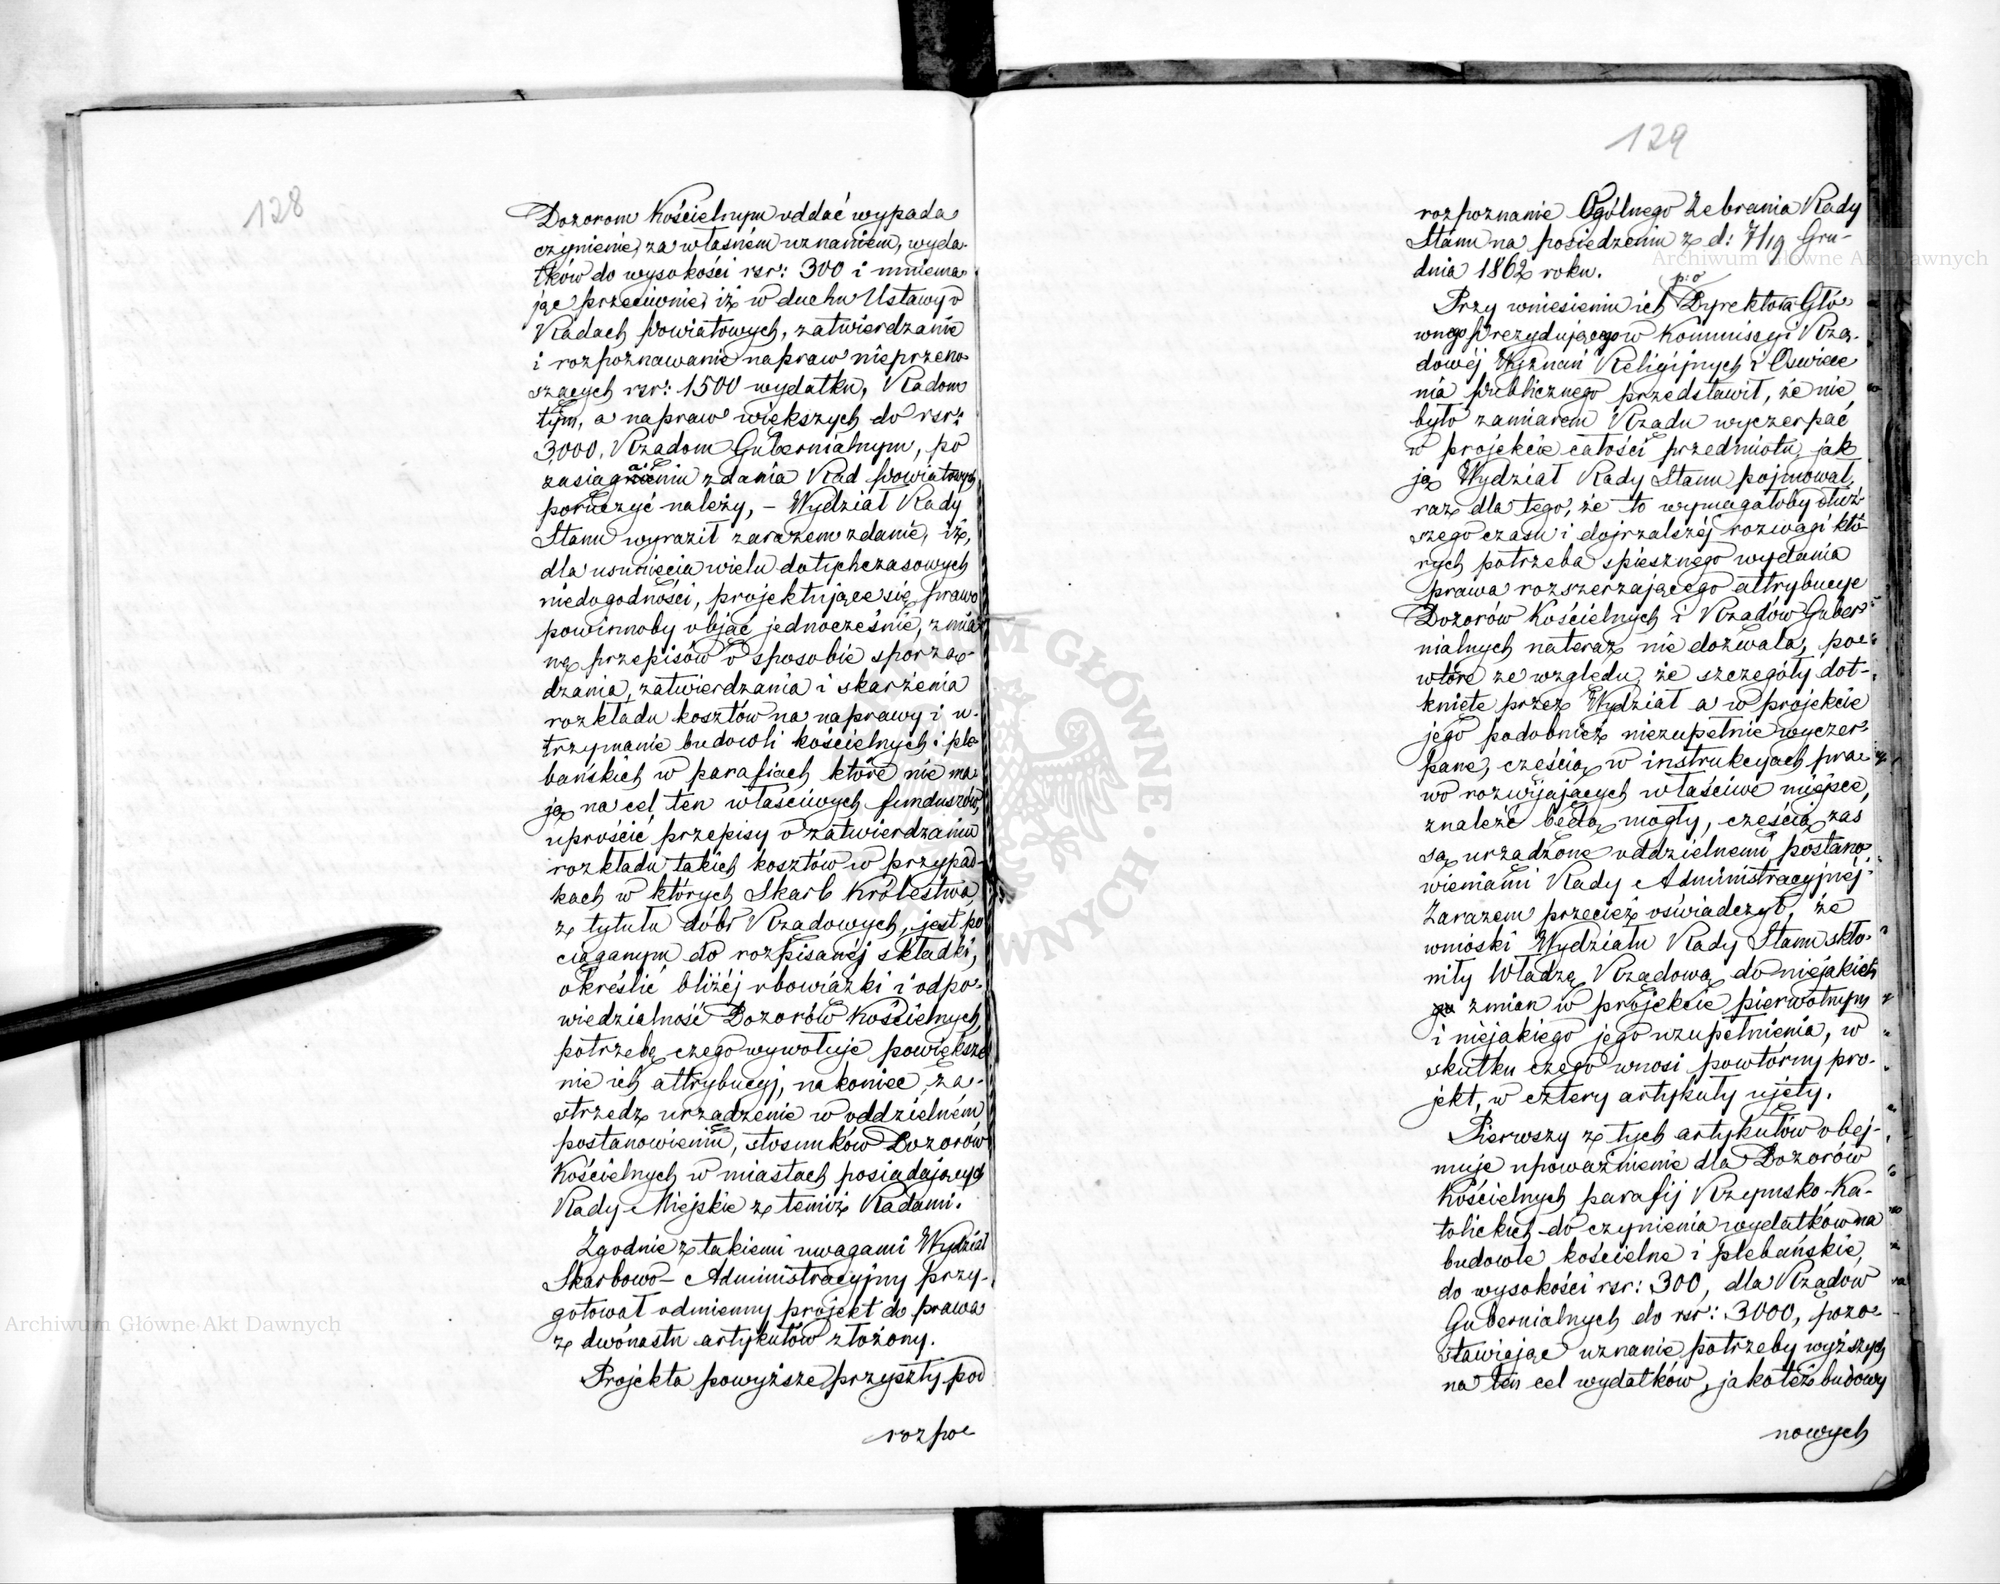 128
Dozorom Kościelnym oddać wypada
czynienie, za własnem uznaniem, wyda-
tków do wysokości rsr: 300 i mniema-
jąc przeciwnie, iż w duchu Ustawy o
Radach Powiatowych, zatwierdzanie
i rozpoznawanie napraw nieprzeno-
szących rsr: 1500 wydatku, Radom
tym, a napraw większych do rsr:
3,000, Rządom Gubernialnym, po
zasiągnieniu zdania Rad Powiatowych
poruczyć należy, – Wydział Rady
Stanu wyraził zarazem zdanie, iż,
dla usunięcia wielu dotychczasowych
niedogodności, projektujące się prawo
powinnoby objąć jednocześnie, zmia-
nę przepisów o sposobie sporzą-
dzania, zatwierdzania i skarżenia
rozkładu kosztów na naprawy i u-
trzymanie budowli kościelnych i ple-
bańskich w parafiach które nie ma-
ją na cel ten właściwych funduszów,
uprościć przepisy o zatwierdzaniu
rozkładu takich kosztów w przypad-
kach w których Skarb Królestwa,
z tytułu dóbr Rządowych, jest po-
ciąganym do rozpisanej składki,
określić bliżej obowiązki i odpo-
wiedzialność Dozorów Kościelnych,
potrzebę czego wywołuje powiększe
nie ich attrybucyj, nakoniec za-
strzedz urządzenie w oddzielném
postanowieniu, stosunków Dozorów
Kościelnych w miastach posiadających
Rady Miejskie z temiż Radami.
Zgodnie z takiemi uwagami Wydział
Skarbowo-Administracyjny przy-
gotował odmienny projekt do prawa
z dwónastu artykułów złożony.
Projekta powyższe przyszły pod
rozpo-
129
rozpoznanie Ogólnego Zebrania Rady
Stanu na posiedzeniu z d: 7/19 Gru-
dnia 1862 roku.
p: o
Przy wniesieniu ich Dyrektora Głó-
wnego Prezydującego w Kommissyi Rzą-
dowej Wyznań Religijnych i Oświece
nia Publicznego przedstawił, że nie
było zamiarem Rządu wyczerpać
w projekcie całości przedmiotu, jak
ją Wydział Rady Stanu pojmował,
raz dla tego, że to wymagałoby dłuż-
szego czasu i dojrzalszéj rozwagi któ-
rych potrzeba spiesznego wydania
prawa rozszerzającego attrybucye
Dozorów Kościelnych i Rządów Guber-
nialnych na teraz nie dozwala, po-
wtóre ze względu, że szczegóły dot-
knięte przez Wydział a w projekcie
jego podobnież niezupełnie wyczer-
pane, częścią w instrukcyach pra-
wo rozwijających właściwe miejsce,
znaleźć będą mogły, częścią zaś
są urządzone oddzielnemi postano-
wieniami Rady Administracyjnéj.
Zarazem przecież oświadczył, że
wnioski Wydziału Rady Stanu skło-
niły Władzę Rządową do niejakich
zmian w projekcie pierwotnym
i niejakiego jego uzupełnienia, w
skutku czego wnosi powtórny pro-
jekt, w cztery artykuły ujęty.
Pierwszy z tych artykułów obej-
muje upoważnienie dla Dozorów
Kościelnych parafij Rzymsko-Ka-
tolickich do czynienia wydatków na
budowle kościelne i plebańskie,
do wysokości rsr: 300, dla Rządów
Gubernialnych do rsr: 3000, pozo-
stawiając uznanie potrzeby wyższych
na ten cel wydatków, jakoteż budowy
nowych
Archiwum Główne Akt Dawnych
Archiwum Główne Akt Dawnych